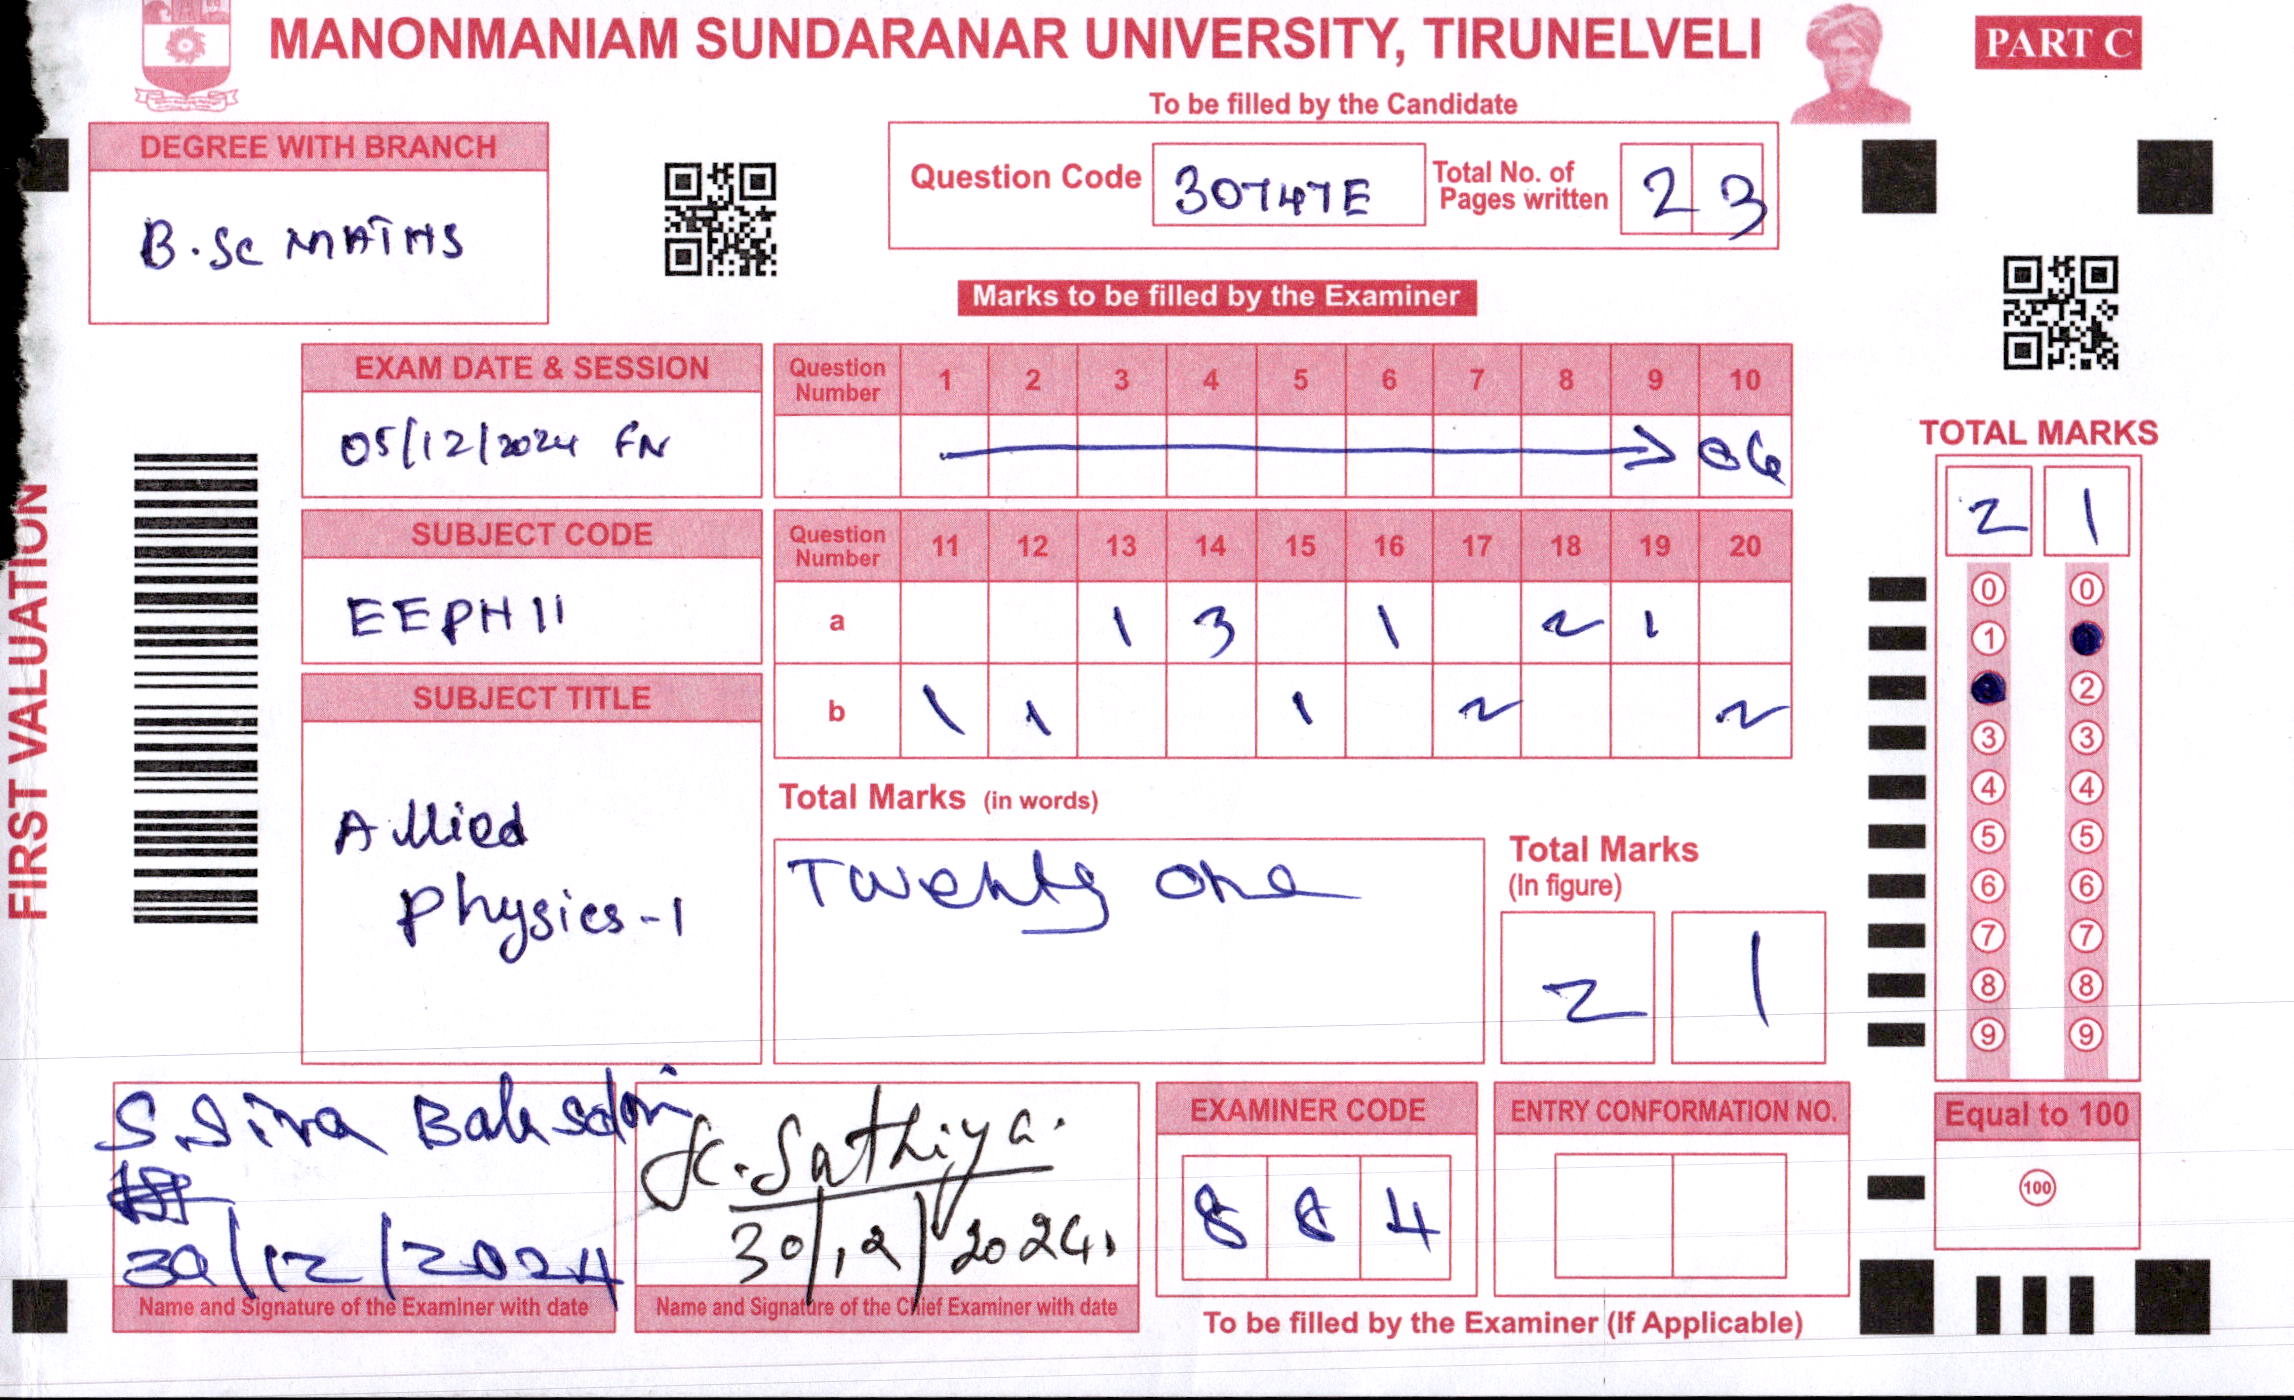 MANONMANIAM SUNDARANAR UNIVERSITY, TIRUNELVELI
PART C
To be filled by the Candidate
DEGREE WITH BRANCH
B.Sc MATHS
Question Code 30747E
Total No. of Pages written 23
Marks to be filled by the Examiner
FIRST VALUATION
EXAM DATE & SESSION
05/12/2024 FN
SUBJECT CODE
EEPH11
SUBJECT TITLE
Allied
Physics-1
Question Number 1 2 3 4 5 6 7 8 9 10
06
Question Number 11 12 13 14 15 16 17 18 19 20
a 1 3 1 2 1
b 1 1 1 2 2
Total Marks (in words)
Twenty One
Total Marks
(In figure)
2 1
TOTAL MARKS
2 1
0 0
1
2
3 3
4 4
5 5
6 6
7 7
8 8
9 9
Equal to 100
100
S. Siva
30/12/2024
Name and Signature of the Examiner with date
K. Sathiya.
30/12/2024.
Name and Signature of the Chief Examiner with date
EXAMINER CODE
8 8 4
ENTRY CONFORMATION NO.
To be filled by the Examiner (If Applicable)